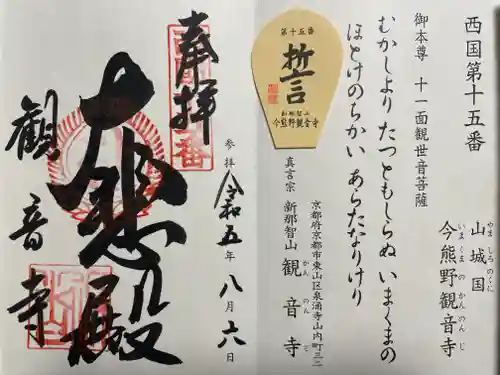 西国第十五番
山城国
やましろのくに
今熊野観音寺
いまくまのかんのんじ
御本尊 十一面観世音菩薩
むかしより たつともしらぬ いまくまの
ほとけのちかい あらたなりけり
京都府京都市東山区泉涌寺山内町三二
真言宗 新那智山 観音寺
かんのんじ
第十五番
誓言
新那智山
今熊野観音寺
奉拝
参拝 令和五年 八月 六日
大悲殿
観音寺